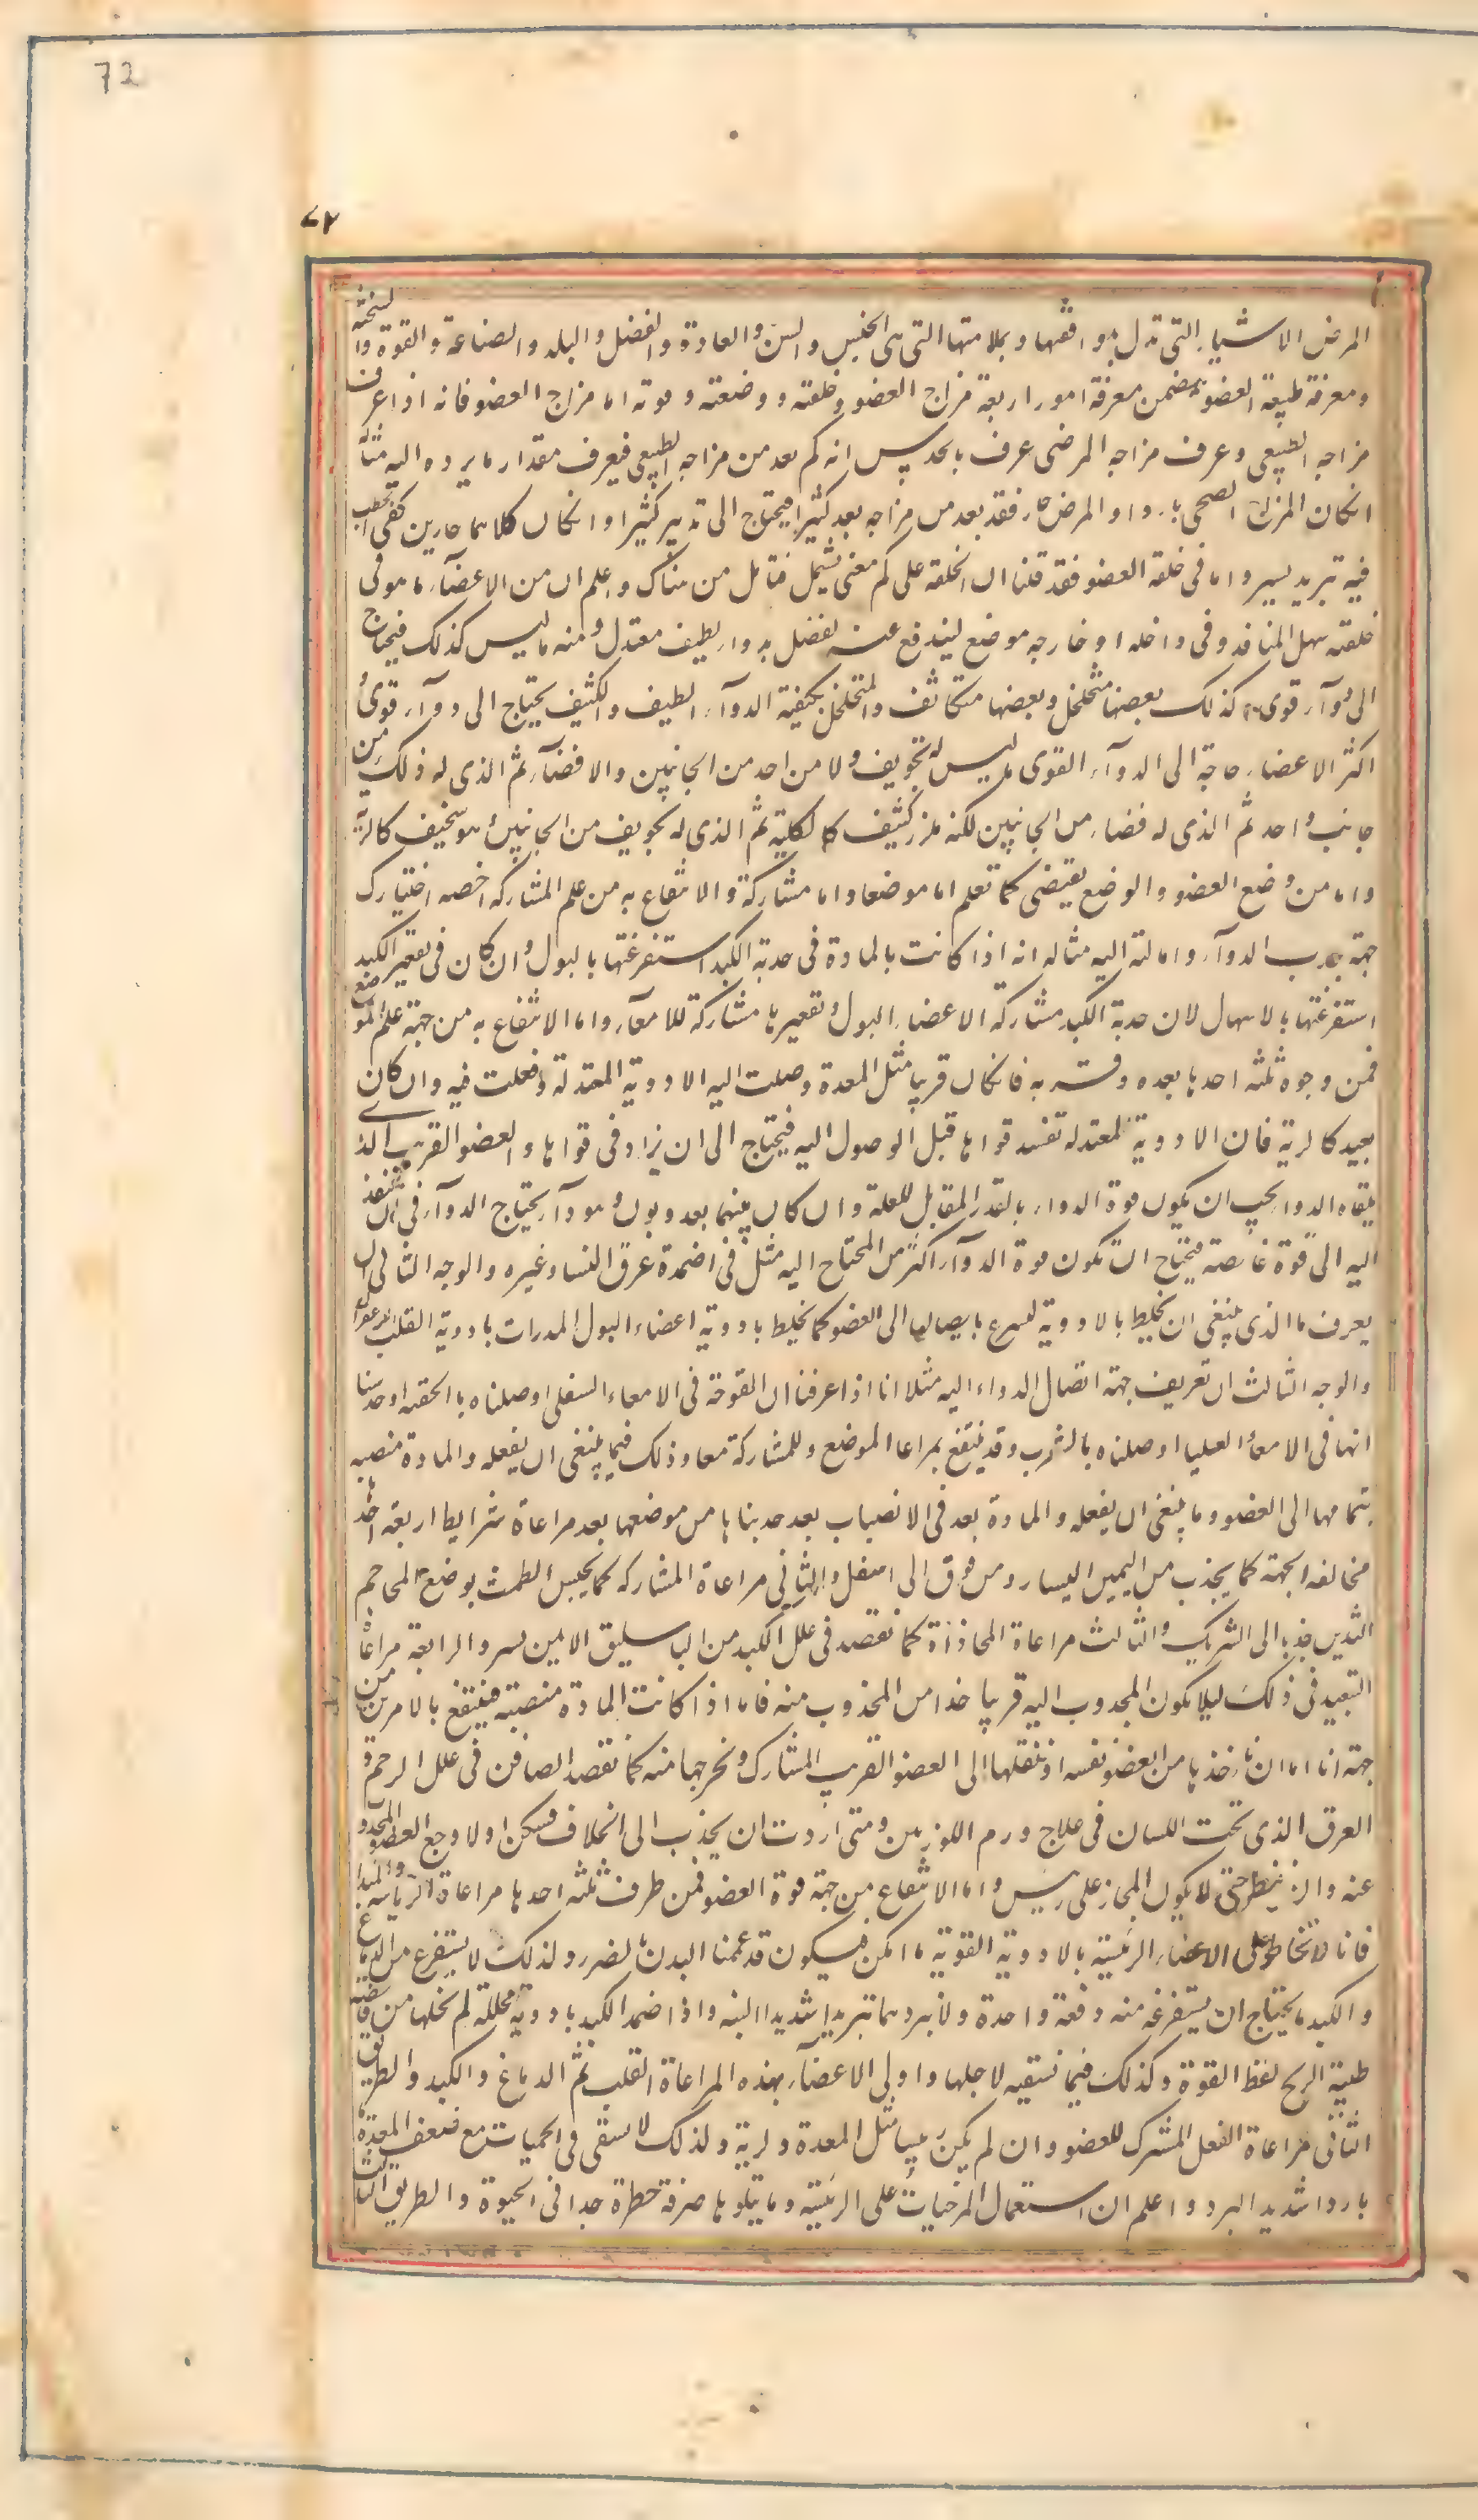 72
٧٢
المرض الاشياء التى تدل بموافقتها وبملامتها التى هى الجنس والسن والعادة والفصل والبلد والصناعة والقوة والسخنة
ومعرفة طبيعة العضو يتضمن معرفة امور اربعة مزاج العضو وخلقته ووضعته وقوته اما مزاج العضو فانه اذا عرف
مزاجه الطبيعى وعرف مزاجه المرضى عرف بالحدس انه كم بعد من مزاجه الطبيعى فيعرف مقدار ما يرده اليه مثاله
انكان المزاج الصحى باردا والمرض حار فقد بعد من مزاجه بعد كثيرا فيحتاج الى تدبير كثيرا وانكان كلاهما حارين كفى الخطب
فيه تبريد يسير واما فى خلقة العضو فقد قلنا ان الخلقة على كم معنى يشمل فتامل من هناك واعلم ان من الاعضآء ما هو فى
خلقته سهل المنافذ وفى داخله او خارجه موضع ليندفع عنه لفضل بدواء لطيف معتدل ومنه ما ليس كذلك فيحتاج
الى دوآء قوى وكذلك بعضها متخلخل وبعضها متكاثف والمتخلخل يكفيه الدوآء اللطيف والكثيف يحتاج الى دوآء قوى و
اكثر الاعضاء حاجة الى الدوآء القوى ما ليس له تجويف ولا من احد من الجانبين والا فضآء ثم الذى له ذلك من
جانب واحد ثم الذى له فضاء من الجانبين لكنه ملزز كثيف كالكلية ثم الذى له تجويف من الجانبين وهو سخيف كالرية
واما من وضع العضو والوضع يقتضى كما تعلم اما موضعا واما مشاركة والانتفاع به من علم المشاركة اخصه اختيارك
جهة جذب الدوآء وامالته اليه مثاله انه اذا كانت بالمادة فى حدبة الكبد استفرغتها بالبول وان كان فى تقعير الكبد
استفرغتها بالاسهال لان حدبة الكبد مشاركة الاعضاء البول وتقعيرها مشاركة للامعآء واما الانتفاع به من جهة علم الموضع
فمن وجوه ثلثه احدها بعده وقربه فانكان قريبا مثل المعدة وصلت اليه الادوية المعتدلة وفعلت فيه وان كان
بعيد كالرية فان الادوية المعتدله تفسد قواها قبل الوصول اليه فيحتاج الى ان يزاد فى قواها والعضو القريب الذى
يلقاه الدواء يجب ان يكون قوة الدواء بالقدر المقابل للعلة وان كان بينهما بعد وبون وهو دآء يحتاج الدوآء فى ان ينفذ
اليه الى قوة غايصة فيحتاج ان تكون قوة الدوآء اكثر من المحتاج اليه مثل فى اضمدة عرق النسا وغيره والوجه الثانى ان
يعرف ما الذى ينبغى ان يخليط بالادوية لسرع بايصالها الى العضو كما يخليط بادوية اعضاء البول المدرات بادوية القلب الزعفران
والوجه الثالث ان تعريف جهة اتصال الدواء اليه مثلا انا اذا عرفنا ان القرحة فى الامعاء السفلى اوصلناه بالحقنه او حدسنا
انها فى الامعاء العليا اوصلناه بالشرب وقد ينتفع بمراعا الموضع وللمشاركة معا وذلك فيما ينبغى ان يفعله والمادة منصبه
بتمامها الى العضو وما ينبغى ان يفعله والمادة بعد فى الانصباب بعد جذبناها من موضعها بعد مراعاة شرايط اربعة احدها
مخالفه الجهة كما يجذب من اليمين اليسار ومن فوق الى اسفل والثانى مراعاة المشاركه كما يحبس الطمث بوضع المحاجم
الثديين جذبا الى الشريك والثالث مراعاة المحاذاة كما نفصد فى علل الكبد من الباسليق الايمن يسر والرابعة مراعاة
التبعيد فى ذلك ليلا يكون المجدوب اليه قريبا خدا من المجذوب منه فاما اذا كانت المادة منصبة فينتفع بالامرين من
جهة انا اما ان ناخذها من العضو نفسه او ننقلها الى العضو القريب المشارك ونخرجها منه كما نفصد الصافن فى علل الرحم و
العرق الذى تحت اللسان فى علاج ورم اللوزتين ومتى اردت ان يجذب الى الخلاف فسكن اولا وجع العضو المجذوب
عنه وان ينظر حتى لا يكون المجاز على رئيس واما الانتفاع من جهة قوة العضو فمن طرف ثلثه احدها مراعاة الرياسه
فانا لا نخاطر على الاعضاء الرئيسة بالادوية القوية ما امكن فيكون قد عممنا البدن بالضرر ولذلك لا يستفرغ من الدماغ
والكبد ما يحتاج ان يستفرغه منه دفعة واحدة ولا نبردهما تبريدا شديدا البته واذا ضمد الكبد بادوية محللة لم نخلها من قابضه
طيبة الريح لحفظ القوة وكذلك فيما نسقيه لاجلها واولى الاعضآء بهذه المراعاة القلب ثم الدماغ والكبد والطريق
الثانى مراعاة الفعل المشرك للعضو وان لم يكن رئيسا مثل المعدة والرية ولذلك لا نسقى فى الحميات مع ضعف المعدة
باردا شديد البرد واعلم ان استعمال المرخيات على الرئيسة وما يتلوها صرفة خطرة جدا فى الحيوة والطريق الثالث